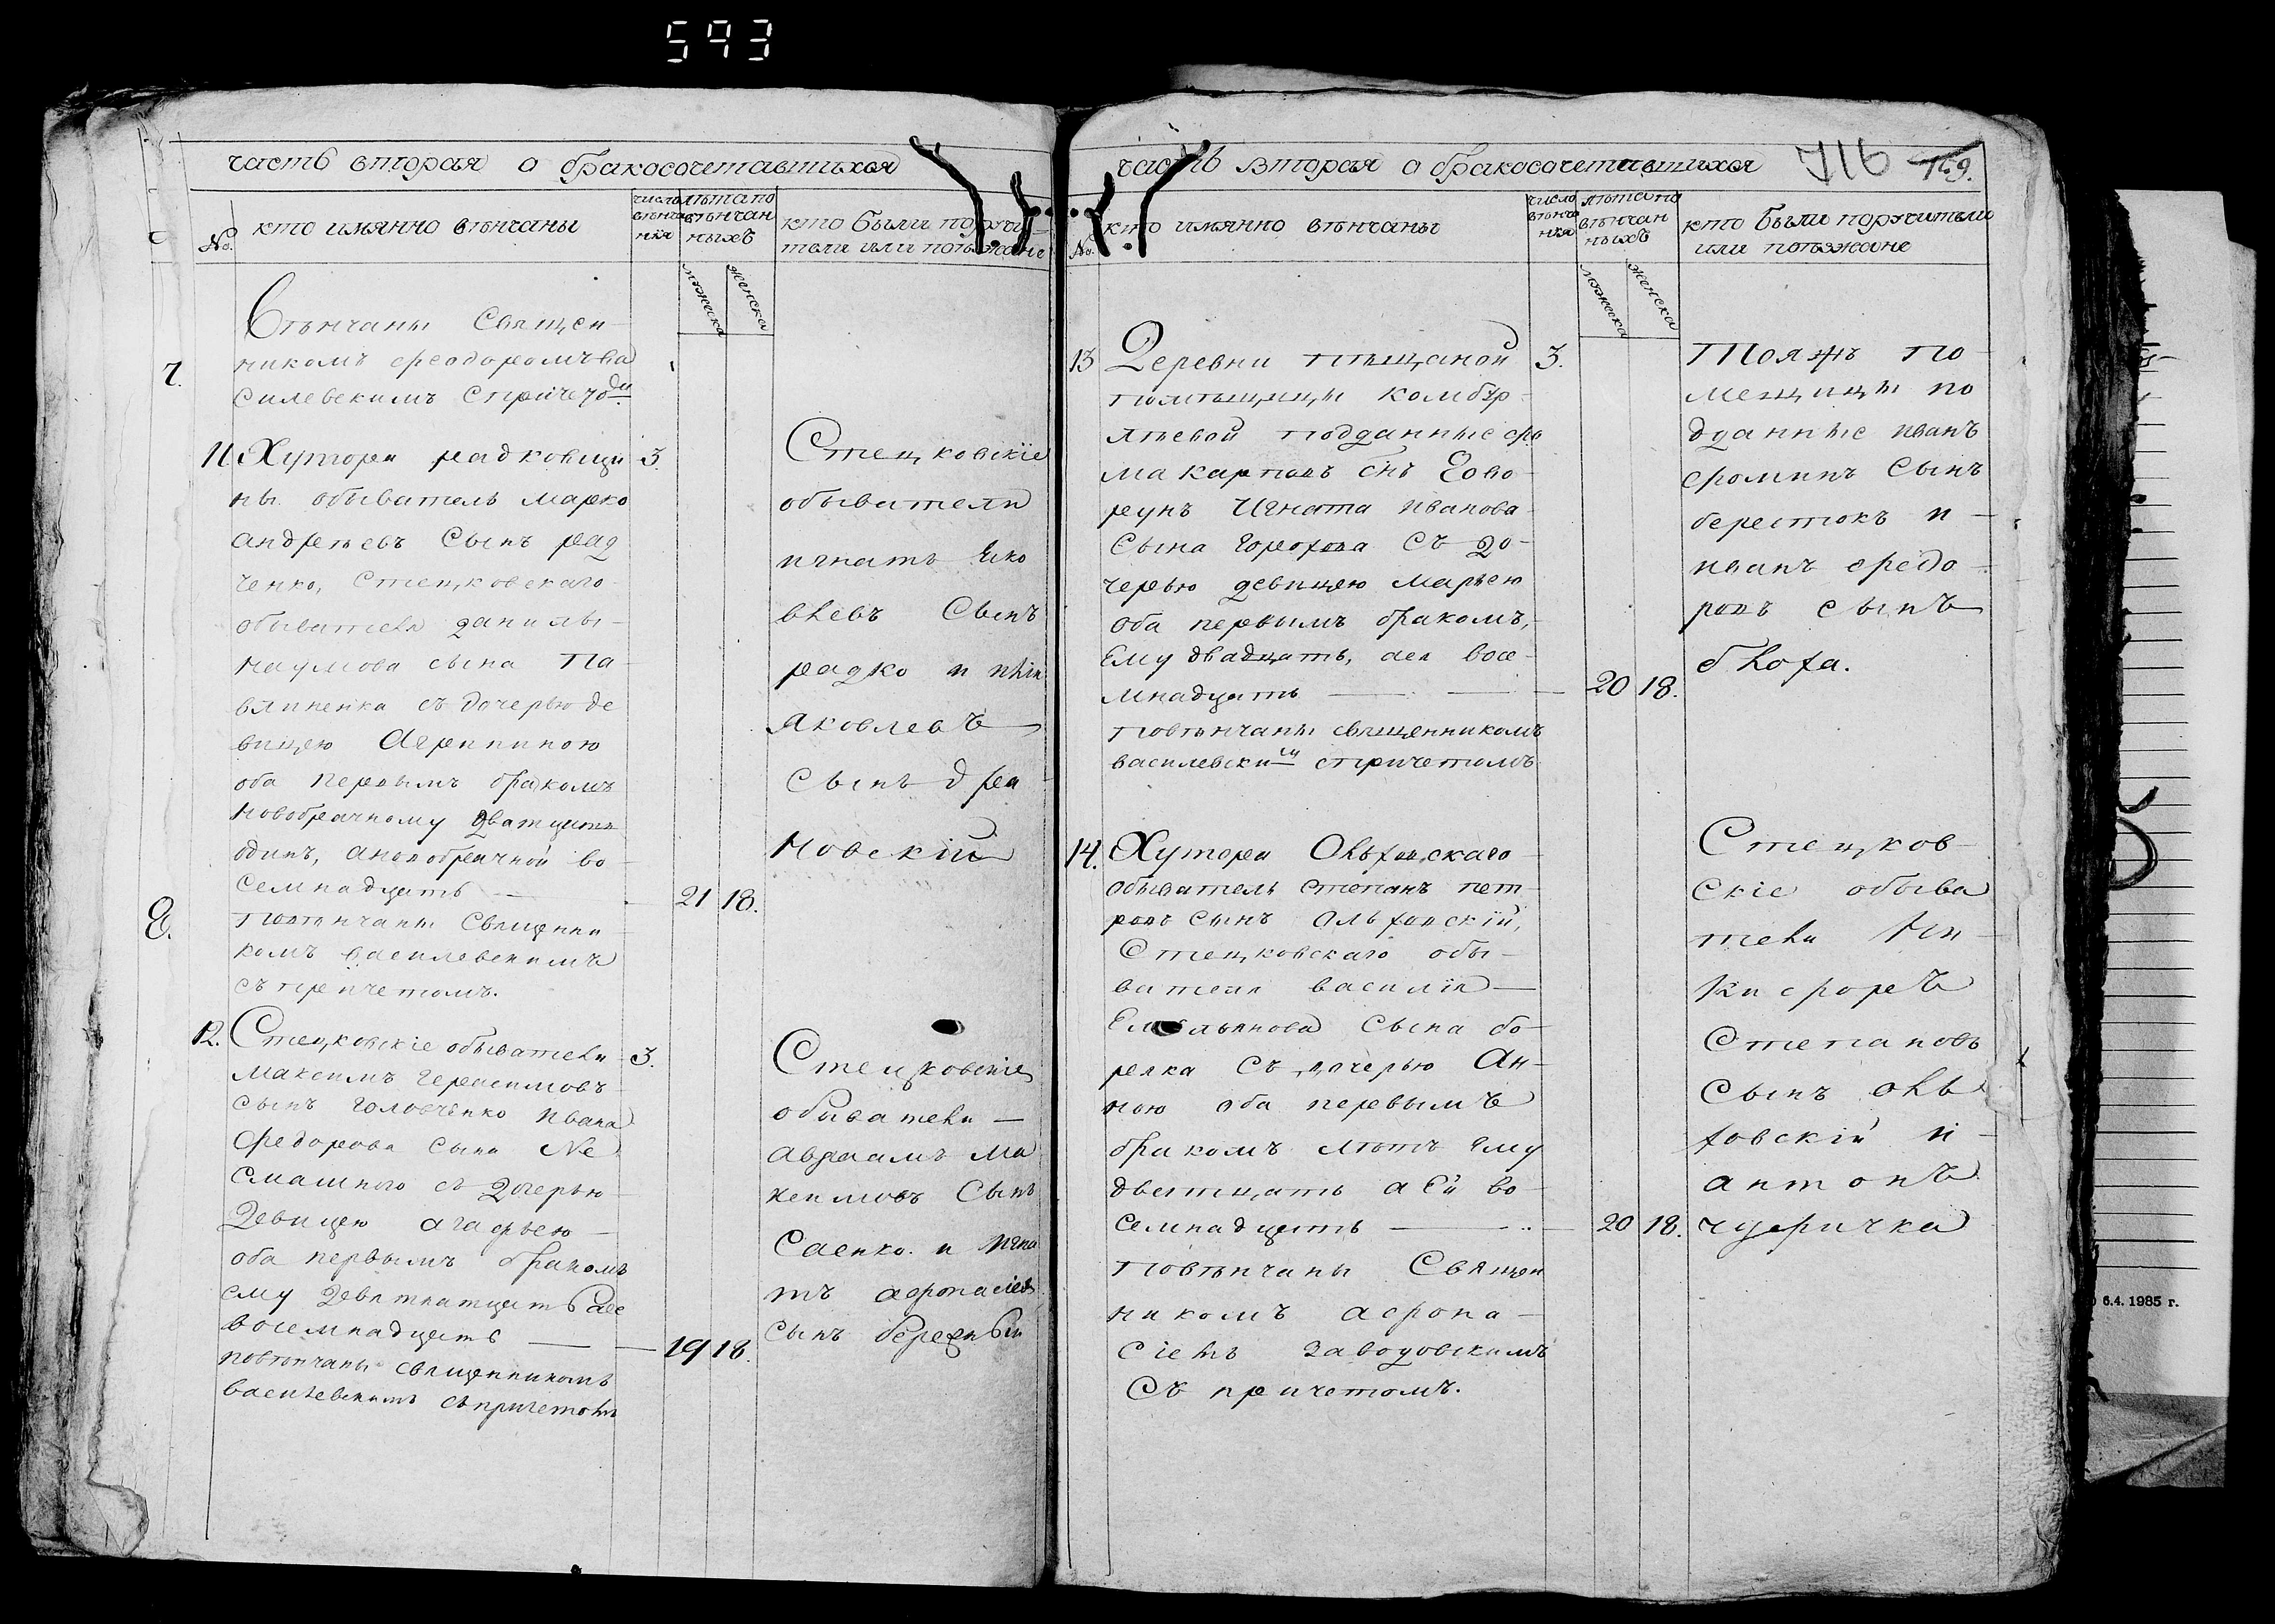 593
часть вторая о бракосочетавшихся
No.
кто имянно венчаны
число венча нiя
лѣта по венчан ныхъ
мужеска
женска
кто были поручи тели или поѣзжане
Венчаны Священ
никомъ Феодоромъ Ва
силевскимъ Спричето
7.
11. Хутора радковщи 3.
ны обыватель Марко
Андреевъ Сынъ рад
ченко, Стецковскаго
обывателя данилы
Наумова сына Па
влиненка съ дочерью де
вицею Агрипиною
оба первымъ бракомъ
Новобрачному дватцать
одинъ, а новобрачной во
семнадцать 21 18.
8.
Повѣнчаны Священни
комъ Василевскимъ
съ причетомъ.
Стецковскiе
обыватели
игнатъ Яко
влевъ Сынъ
радко и
Яковлевъ
Сынъ
новскiй
12. Стецковскiе обыватели 3.
Максимъ Герасимовъ
сынъ Головченко Ивана
Федорова сына Не
смашного съ дочерью
девицею Агафьею
оба первымъ бракомъ
ему девятнатцать а ее
восемнадцать 19 18.
повѣнчаны священникомъ
Васильевскимъ съ причетомъ
Стецковскiе
обыватели
Авраамъ Ма
ксимовъ Сынъ
Саенко. и Игна
тъ Афонасiевъ
сынъ
часть вторая о бракосочетавшихся
716
159.
No.
кто имянно венчаны
число венча нiя
лѣта по венчан ныхъ
мужеска
женска
кто были поручители
или поѣзжане
13 Деревни пѣщаной 3.
помѣщицы Комбур
лѣевой подданные
ма карповъ снъ Гово
рунъ Игната Иванова
Сына Горохова съ до
черью девицею Марьею
оба первымъ бракомъ,
Ему двадцать, а ея восе
мнадцать 20 18.
повѣнчаны священникомъ
василевски спричетомъ
Тояжъ по
мещицы по
дданные иванъ
фоминъ Сынъ
берестокъ и
иванъ федо
ровъ сынъ
блоха.
14. Хутора Ольховскаго
обыватель Степанъ пет
ровъ Сынъ Ольховскiй,
Стецковскаго обы
вателя василiя
Емельянова Сына бо
релка съ дочерью Ан
ною оба первымъ
бракомъ лѣтъ Ему
дватцать а Ей во
семнадцать 20 18.
Повѣнчаны Священ
никомъ Афона
сiемъ Заводовскимъ
Съ причетомъ.
Стецков
скiе обыва
тели
Никифоръ
Степановъ
Сынъ Оль
ховскiй и
антонъ
6.4.1985 г.